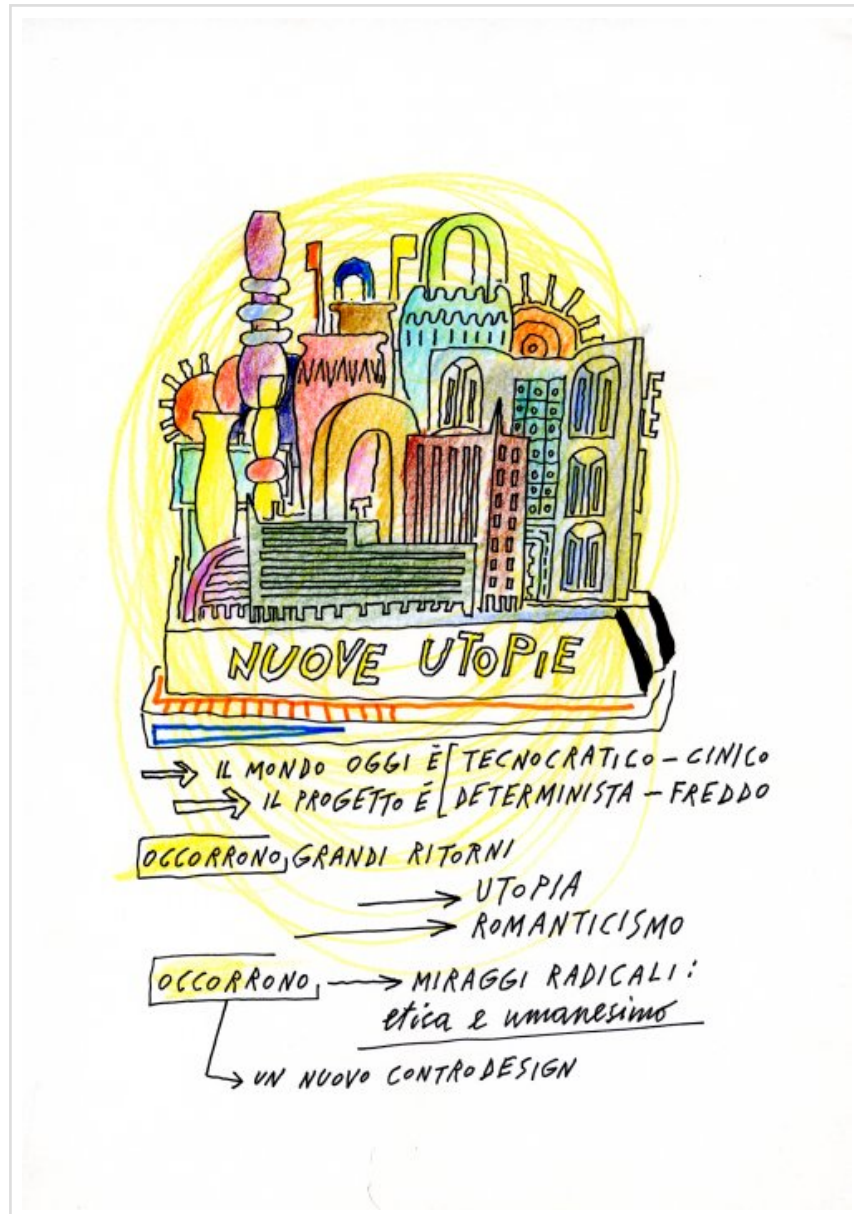 NUOVE UTOPIE
IL MONDO OGGI È [TECNOCRATICO - CINICO
IL PROGETTO É [DETERMINISTA - FREDDO
OCCORRONO GRANDI RITORNI
UTOPIA
ROMANTICISMO
OCCORRONO → MIRAGGI RADICALI:
etica e umanesimo
UN NUOVO CONTRODESIGN